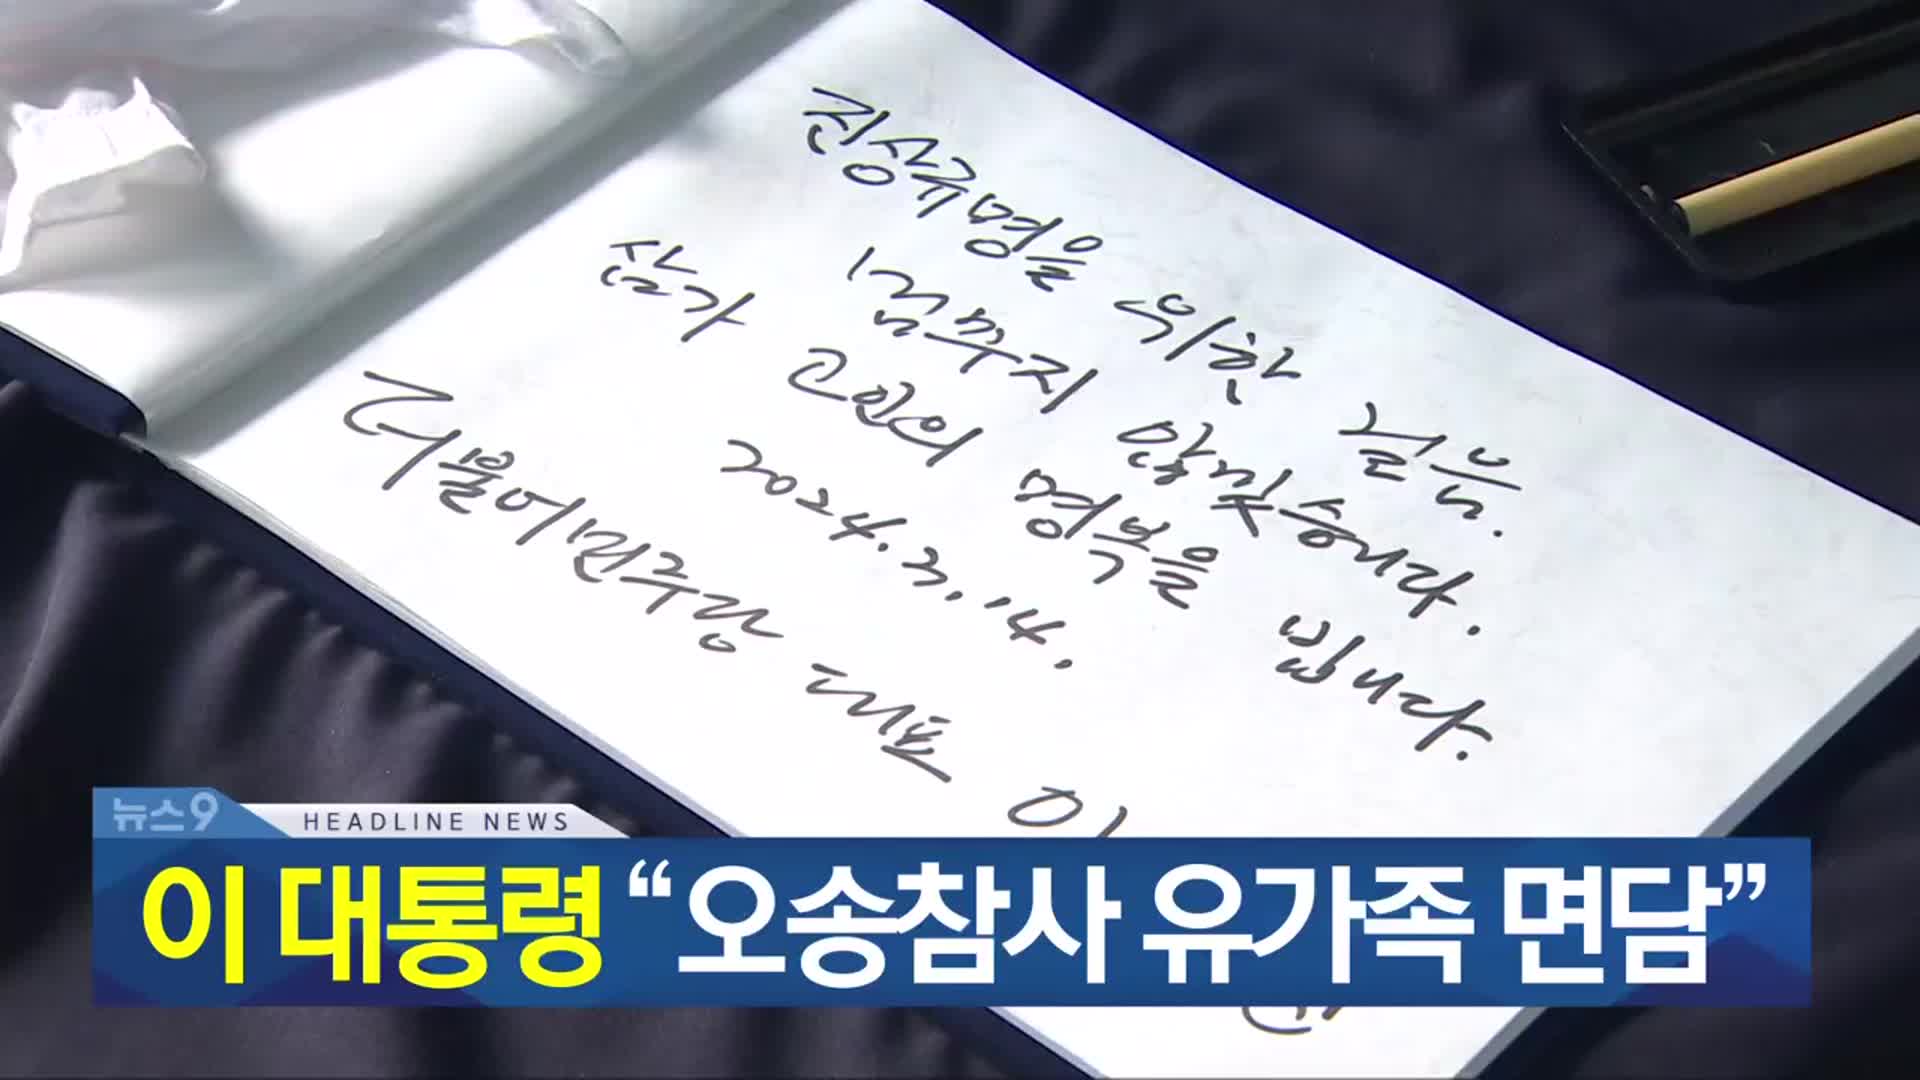 진상규명을 위한 걸음.
멈추지 않겠습니다.
삼가 고인의 명복을 빕니다.
2024. 2. 14.
더불어민주당 대표 이
뉴스9
HEADLINE NEWS
이 대통령 “오송참사 유가족 면담”